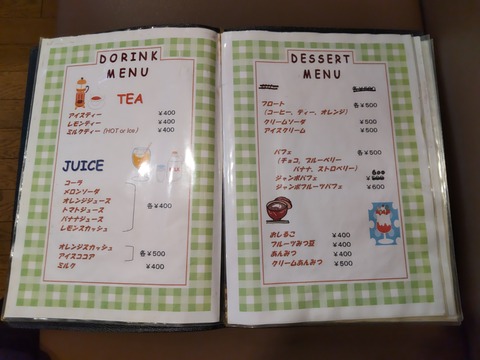 DORINK
MENU
TEA
アイスティー ￥400
レモンティー ￥400
ミルクティー (HOT or Ice) ￥400
JUICE
コーラ
メロンソーダ
オレンジジュース
トマトジュース
バナナジュース
レモンスカッシュ
各￥400
オレンジスカッシュ
アイスココア 各￥500
ミルク ￥400
DESSERT
MENU
フロート 各￥500
(コーヒー、ティー、オレンジ)
クリームソーダ ￥500
アイスクリーム ￥500
パフェ 各￥500
(チョコ、ブルーベリー
バナナ、ストロベリー)
ジャンボパフェ
ジャンボフルーツパフェ ￥600
おしるこ ￥400
フルーツみつ豆 ￥400
あんみつ ￥400
クリームあんみつ ￥500